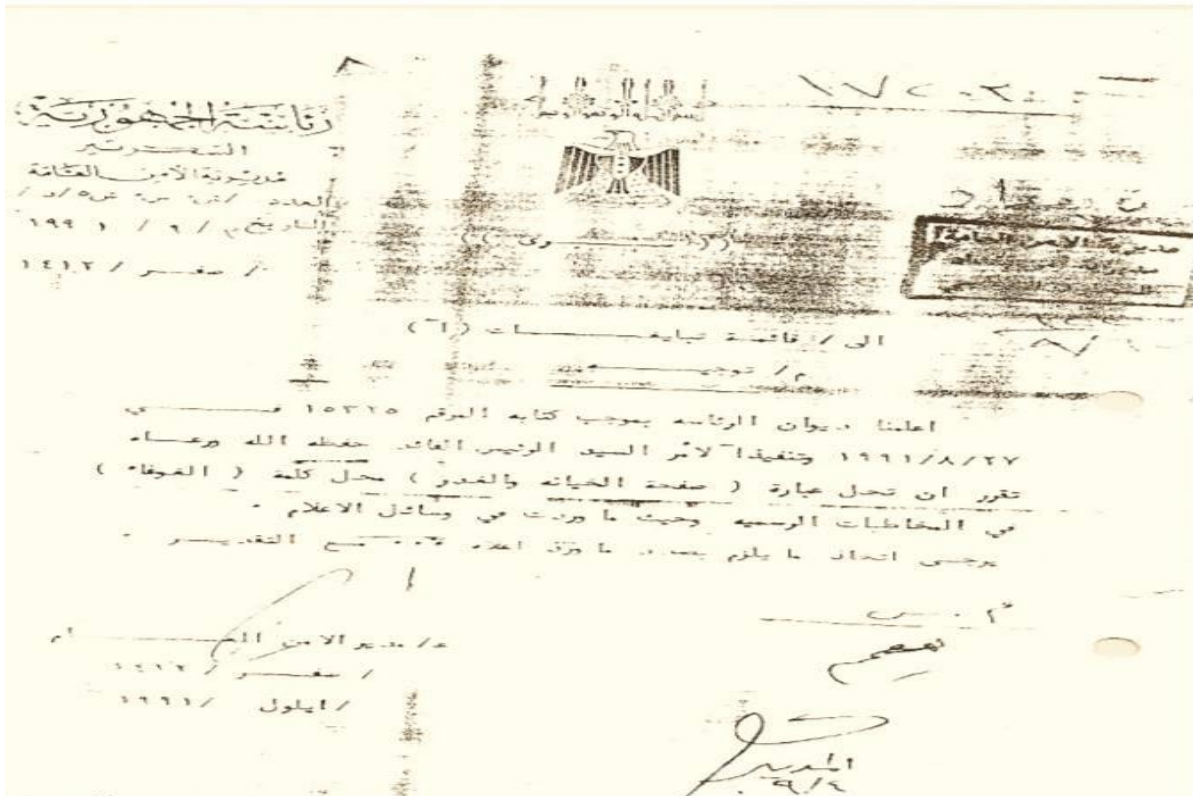 رئاسة الجمهورية
السكرتير
مديرية الأمن العامة
العدد / س٥ / د /
التاريخ م / ٩ / ١٩٩١
/ صفر / ١٤١٢
مديرية الأمن العامة
الى / قائمة تبليغات (آ)
م/ توجيه
اعلمنا ديوان الرئاسه بموجب كتابه المرقم ١٥٣٢٥ في
١٩٩١/٨/٢٧ وتنفيذا لأمر السيد الرئيس القائد حفظه الله ورعاه
تقرر ان تحل عبارة ( صفحة الخيانه والغدر ) محل كلمة ( الغوغاء )
في المخاطبات الرسميه وحيث ما وردت في وسائل الاعلام .
يرجى اتخاذ ما يلزم بصدد ما ورد اعلاه ٠٠٠ مع التقدير .
ع/ مدير الامن العام
/ صفر / ١٤١٢
/ ايلول / ١٩٩١
يعمم
المدير
٩/٤